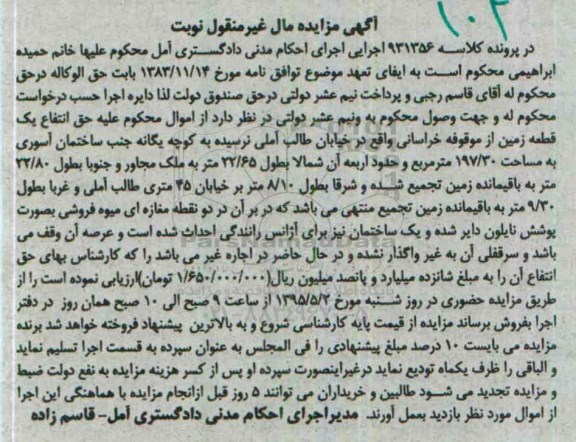 ۱۰۴
آگهی مزایده مال غیرمنقول نوبت
در پرونده کلاسه ۹۳۱۳۵۶ اجرایی اجرای احکام مدنی دادگستری آمل محکوم علیها خانم حمیده
ابراهیمی محکوم است به ایفای تعهد موضوع توافق نامه مورخ ۱۳۸۳/۱۱/۱۴ بابت حق الوکاله درحق
محکوم له آقای قاسم رجبی و پرداخت نیم عشر دولتی درحق صندوق دولت لذا دایره اجرا حسب درخواست
محکوم له و جهت وصول محکوم به ونیم عشر دولتی در نظر دارد از اموال محکوم علیه حق انتفاع یک
قطعه زمین از موقوفه خراسانی واقع در خیابان طالب آملی نرسیده به کوچه یگانه جنب ساختمان آسوری
به مساحت ۱۹۷/۳۰ مترمربع و حدود اربعه آن شمالا بطول ۲۲/۶۵ متر به ملک مجاور و جنوبا بطول ۲۲/۸۰
متر به باقیمانده زمین تجمیع شده و شرقا بطول ۸/۱۰ متر بر خیابان ۴۵ متری طالب آملی و غربا بطول
۹/۳۰ متر به باقیمانده زمین تجمیع منتهی می باشد که در بر آن در دو نقطه مغازه ای میوه فروشی بصورت
پوشش نایلون دایر شده و یک ساختمان نیز برای آژانس رانندگی احداث شده است و عرصه آن وقف می
باشد و سرقفلی آن به غیر واگذار نشده و در حال حاضر در اجاره غیر می باشد را که کارشناس بهای حق
انتفاع آن را به مبلغ شانزده میلیارد و پانصد میلیون ریال(۱/۶۵۰/۰۰۰/۰۰۰ تومان)ارزیابی نموده است را از
طریق مزایده حضوری در روز شنبه مورخ ۱۳۹۵/۵/۲ از ساعت ۹ صبح الی ۱۰ صبح همان روز در دفتر
اجرا بفروش برساند مزایده از قیمت پایه کارشناسی شروع و به بالاترین پیشنهاد فروخته خواهد شد برنده
مزایده می بایست ۱۰ درصد مبلغ پیشنهادی را فی المجلس به عنوان سپرده به قسمت اجرا تسلیم نماید
و الباقی را ظرف یکماه تودیع نماید درغیراینصورت سپرده او پس از کسر هزینه مزایده به نفع دولت ضبط
و مزایده تجدید می شود طالبین و خریداران می توانند ۵ روز قبل ازانجام مزایده با هماهنگی این اجرا
از اموال مورد نظر بازدید بعمل آورند. مدیراجرای احکام مدنی دادگستری آمل- قاسم زاده